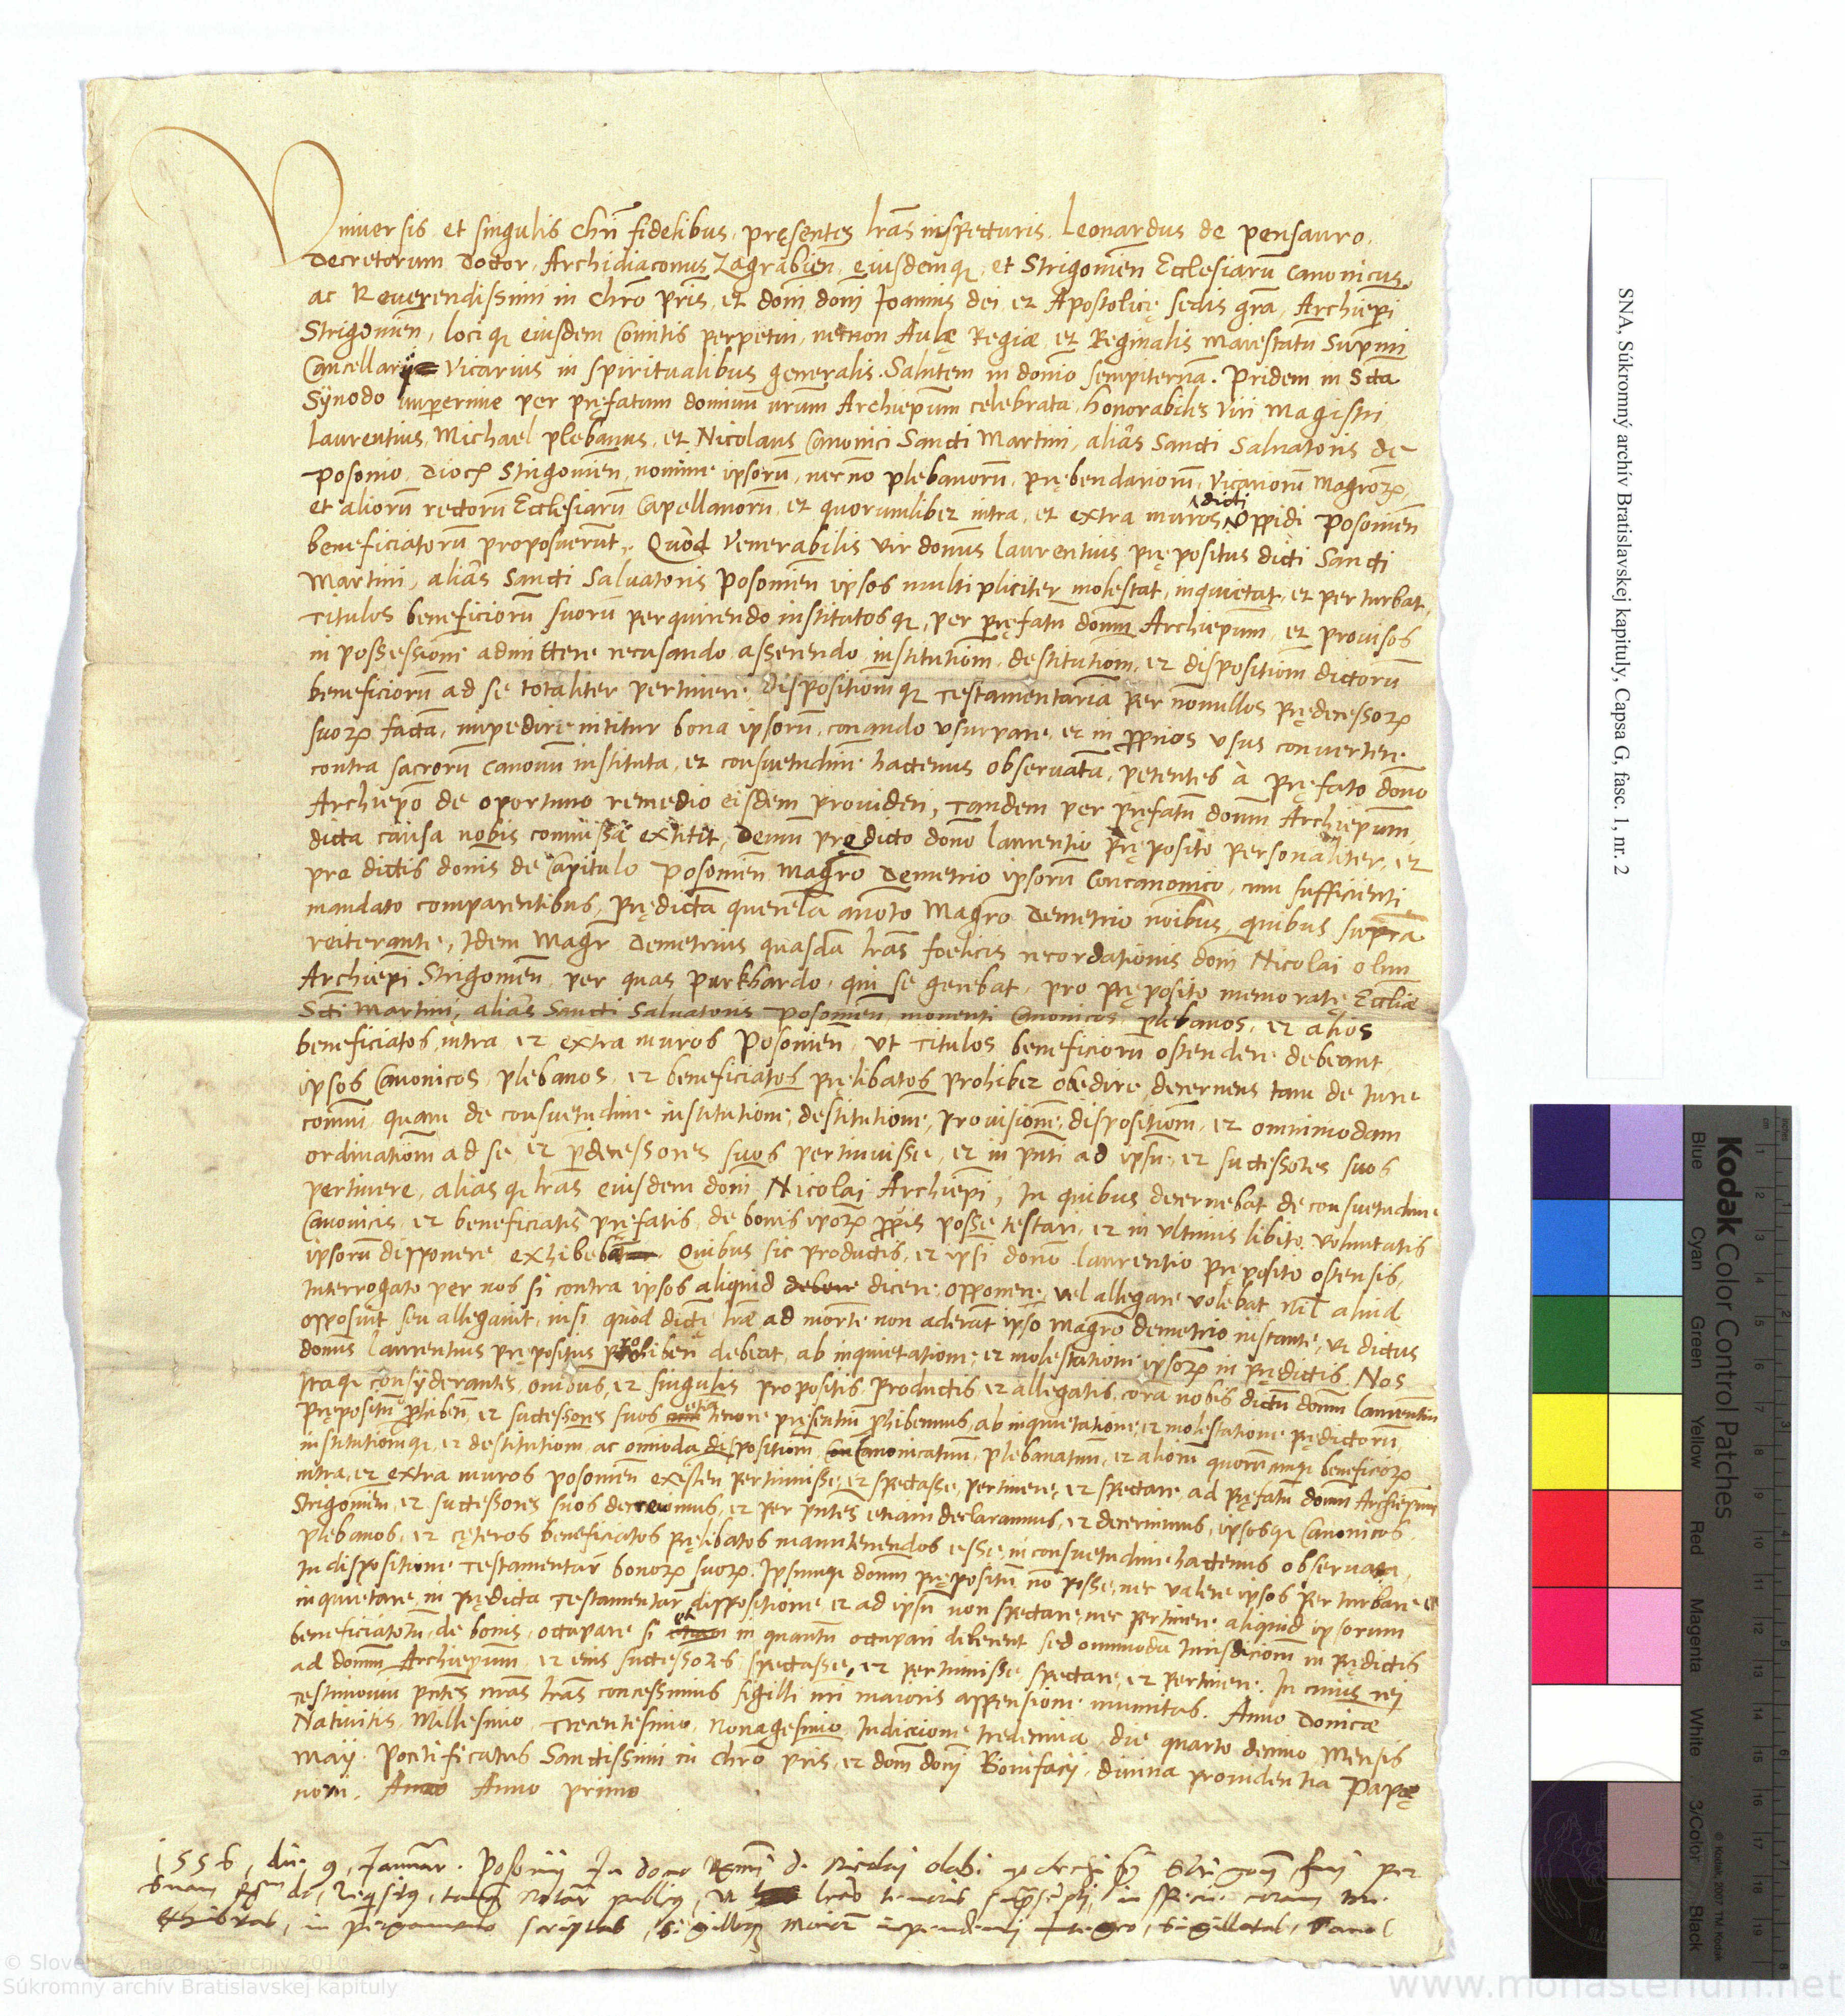 Vniuersis et singulis Chrī fidelibus, pręsentes lrās inspecturis. Leonardus de pensauro,
Decretorum Doctor, Archidiaconus Zagrabien̄, eiusdemq₃ et Strigonien̄ Ecclesiarū Canonicus,
ac Reuerendissimi in Chrō pris, et domī, domī Joannis dei et Apostolicę sedis grā, Archiepi
Strigonien̄, lociq₃ eiusdem Comitis perpetui, necnon Aulę Regiæ, et Reginalis maiestatū Supmi
Cancellarij Vicarius in spiritualibus generalis. Salutem in domīo sempiternā. Pridem in Scta
Synodo per pręfatum dominū nrūm Archiepūm celebrata, honorabiles viri magistri
Laurentius, Michael plebanus, et Nicolaus Canonici Sancti Martini, aliās Sancti Saluatoris de
Posonio, Dioc₃ Strigonien̄, nomine ipsorū, necnō plebanorū, prębendariorū, Vicariorū Magroꝝ,
et aliorū rectorū Ecclesiarū Capellanorū, et quorumlibet intra, et extra muros dicti Oppidi Posonien̄
beneficiatorū proposuerūt, Quōd Venerabilis vir domūs Laurentius prępositus dicti Sancti
Martini, aliās Sancti Saluatoris Posonien̄ ipsos multipliciter molestat, inquietat, et perturbat,
Titulos beneficiorū suorū perquirendo institutosq₃, per pręfatū domm̄ Archiepum, et prouisos
in possessionē admittere recusando asserendo institutionī, destitutionī, et dispositionī dictorū
beneficiorū ad se totaliter pertinere. Dispositionīq₃ Testamentariā per nōnullos prędecessoꝝ
suoꝝ factā, impedire nititur bona ipsorū, conando vsurpare, et in pprios vsus conuertere
contra sacrorū Canonū instituta, et consuetudinē hactenus obseruatā, petentes à pręfato domō
Archiepō de oportuno remedio eisdem prouideri, Tandem per pręfatū domm̄ Archiepum,
dicta causa nobis commissa extitit, Demū prędicto domō Laurentio pręposito personaliter, et
pro dictis domīs de Capitulo Posonien̄ Magrō Demetrio ipsorū Concanonico, cum sufficienti
mandato comparentibus, prędictā querelā anōto Magrō Demetrio nōībus, quibus supra
reiterante, Idem Magr̄ Demetrius quasdā lrās foelicis recordationis domī Nicolai olim
Archiepi Strigonien̄, per quas Purkhardo, qui se gerebat, pro pręposito memoratę Eccliæ
Scti Martini, aliās Sancti Saluatoris Posonien̄, monenti Canonicos, plebanos, et alios
beneficiatos, intra et extra muros Posonien̄, vt Titulos beneficiorū ostendere debeant,
ipsos Canonicos, plebanos, et beneficiatos pręlibatos prohibet obedire, decernens tam de Iure
commī quam de consuetudine institutionē, destitutionē, prouisionē, dispositionī, et omnimodam
ordinationī ad se, et pdecessores suos pertinuisse, et in pnti ad ipsū, et successores suos
pertinere, aliasq₃ lrās eiusdem domī Nicolai Archiepi, In quibus decernebat de consuetudine
Canonicis, et beneficiatis pręfatis, de bonis ipōꝝ ppīs posse testari, et in vltimis libito voluntatis
ipsorū disponere exhibebat. Quibus sic productis, et ipsi domō Laurentio pręposito ostensis,
Interrogato per nos si contra ipsos aliquid debere dicere, opponere, vel allegare volebat, nil aliud
opposuit seu allegauit, nisi quōd dictę lræ ad mortē non aderāt, ipso Magrō Demetrio instante, vt dictus
domūs Laurentius prępositus prohiberi debeat, ab inquietatione, et molestatione ipsoꝝ in prędictis. Nos
Itaq₃ consyderantes, omībus, et singulis propositis, productis, et allegatis corā nobis dictū domm̄ Laurentiū
Prępositū phiberi, et successores suos etiā tenore pręsentiū phibemus, ab inquietatione, et molestatione prędictorū,
institutionīq₃, et destitutionī, ac omīodā dispositionī Canonicatuū, plebanatuū, et aliorū quorumcunq₃ beneficioꝝ
intra, et extra muros Posonien̄ existen̄ pertinuisse, et spectasse, pertinere, et spectare, ad pręfatū domm̄ Archiepum
Strigonien̄, et successores suos decreuimus, et per pntes etiam declaramus, et decernimus, ipsosq₃ Canonicos,
plebanos, et cęteros beneficiatos pręlibatos manutenendos esse, in consuetudine hactenus obseruata,
In dispositione Testamentar̄ bonoꝝ suoꝝ. Ipsumq₃ domm̄ prępositū nō posse, nec valere ipsos perturbare et
inquietare, in prędicta Testamentar̄ dispositione, et ad ipsū non spectare, nec pertinere aliquid ipsorum
beneficiatorū, de bonis, occupare si in quantū occupari deberent, sed omnimodā Iurisdictionī in prędictis
ad domm̄ Archiepum, et eius successores spectasse, et pertinuisse, spectare, et pertinere. In cuius rei
testimoniū pntes nrās lrās concessimus sigilli nri maioris appensione munitas. Anno Domicæ
Natiuitis, Millesimo, Trecentesimo, Nonagesimo Indictione tredecima, die quarto decimo Mensis
Maij. Pontificatus Sanctissimi in Chrō pris, et domī, domī Bonifacij, diuina prouidentia Papę
noni. Anno Anno primo

1556, die 9, Januar. Posonij In domo Rmi d. Nicolaj olahi per
requisitus, notar publicus, in specie coram me
exhibitas, in pergameno scriptas, sigillo maiori inpendenti integro, sigillatas,